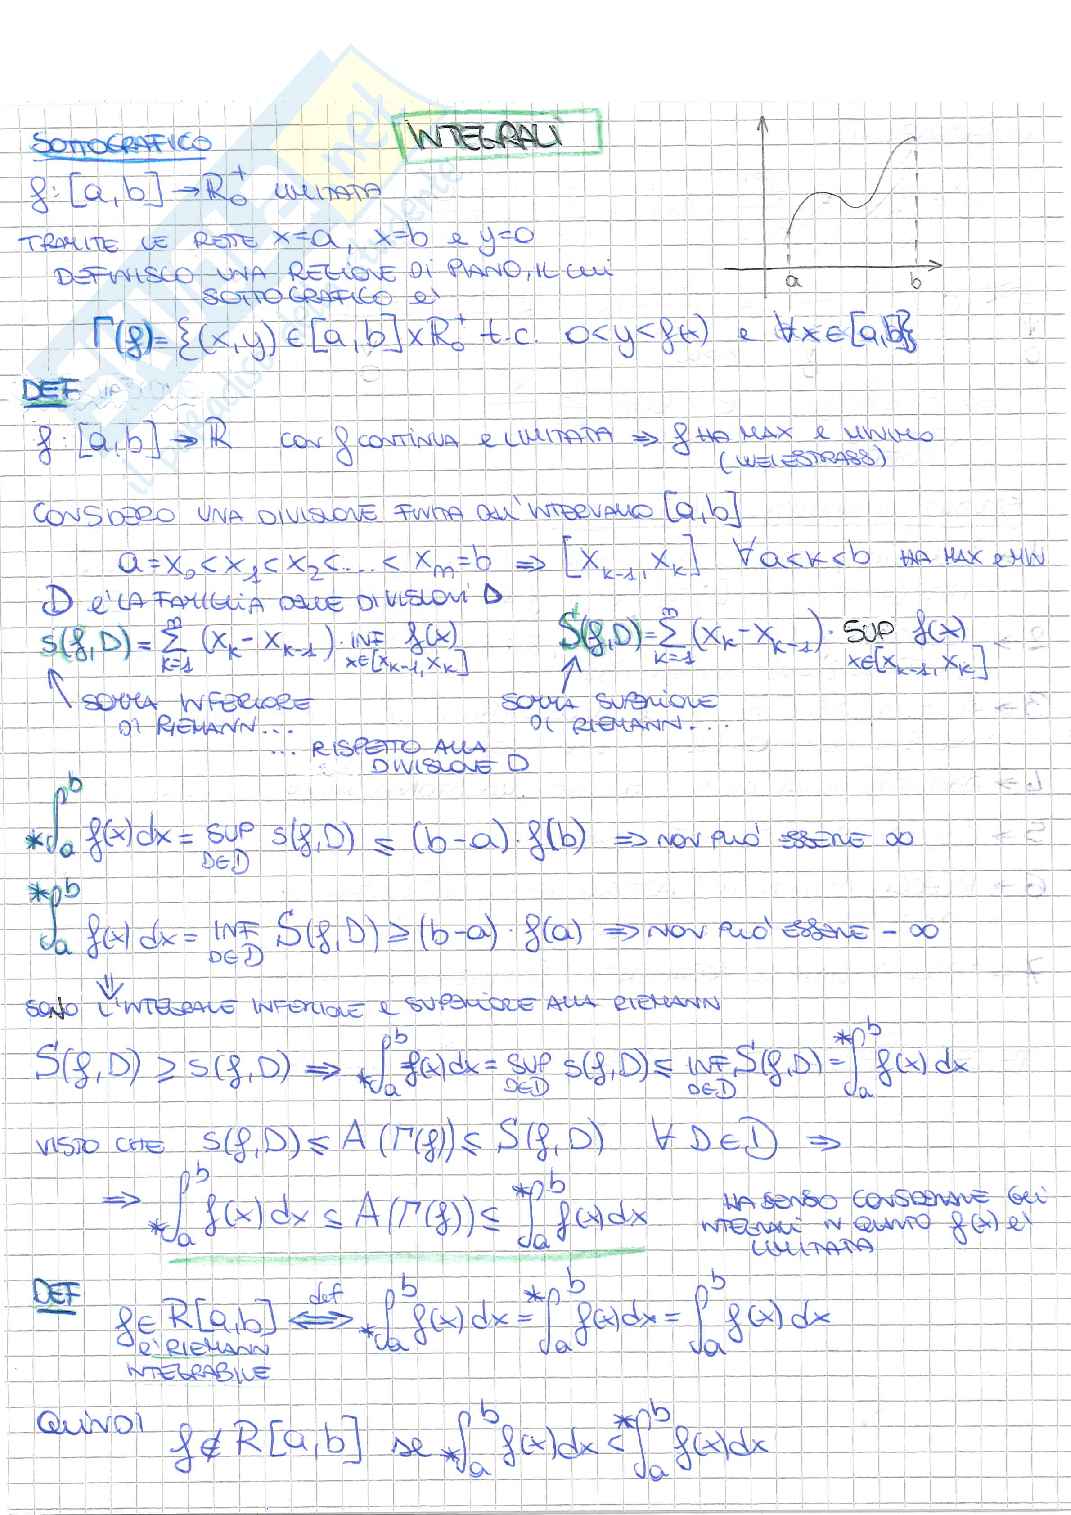 INTEGRALI
SOTTOGRAFICO
f: [a,b] → R₀⁺ LIMITATA
TRAMITE LE RETTE x=a, x=b e y=0
DEFINISCO UNA REGIONE DI PIANO, IL CUI
SOTTOGRAFICO E'
a b
Γ(f)= {(x,y) ∈ [a,b]×R₀⁺ t.c. 0<y<f(x) e ∀x∈[a,b]}
DEF
f: [a,b] → R CON f CONTINUA E LIMITATA ⇒ f HA MAX E MINIMO
(WEIESTRASS)
CONSIDERO UNA DIVISIONE FINITA DELL'INTERVALLO [a,b]
a=x₀<x₁<x₂<...<xₘ=b ⇒ [xₖ₋₁, xₖ] ∀a<k<b HA MAX E MIN
D E' LA FAMIGLIA DELLE DIVISIONI D
s(f,D)= Σₖ₌₁ᵐ (xₖ-xₖ₋₁)· INF x∈[xₖ₋₁,xₖ] f(x) S(f,D)= Σₖ₌₁ᵐ (xₖ-xₖ₋₁)· SUP x∈[xₖ₋₁,xₖ] f(x)
SOMMA INFERIORE SOMMA SUPERIORE
DI RIEMANN... DI RIEMANN...
... RISPETTO ALLA
DIVISIONE D
*∫ₐᵇ f(x)dx = SUP D∈D s(f,D) ≤ (b-a)·f(b) ⇒ NON PUO' ESSERE ∞
*∫ₐᵇ f(x)dx = INF D∈D S(f,D) ≥ (b-a)·f(a) ⇒ NON PUO' ESSERE -∞
⇓
SONO L'INTEGRALE INFERIORE E SUPERIORE ALLA RIEMANN
S(f,D) ≥ s(f,D) ⇒ *∫ₐᵇ f(x)dx = SUP D∈D s(f,D) ≤ INF D∈D S(f,D) = *∫ₐᵇ f(x)dx
VISTO CHE s(f,D) ≤ A(Γ(f)) ≤ S(f,D) ∀ D∈D ⇒
⇒ *∫ₐᵇ f(x)dx ≤ A(Γ(f)) ≤ *∫ₐᵇ f(x)dx
HA SENSO CONSIDERARE GLI
INTEGRALI IN QUANTO f(x) E'
LIMITATA
DEF
f∈R[a,b] ⇔ def *∫ₐᵇ f(x)dx = *∫ₐᵇ f(x)dx = ∫ₐᵇ f(x)dx
E' RIEMANN
INTEGRABILE
QUINDI f∉R[a,b] se *∫ₐᵇ f(x)dx < *∫ₐᵇ f(x)dx